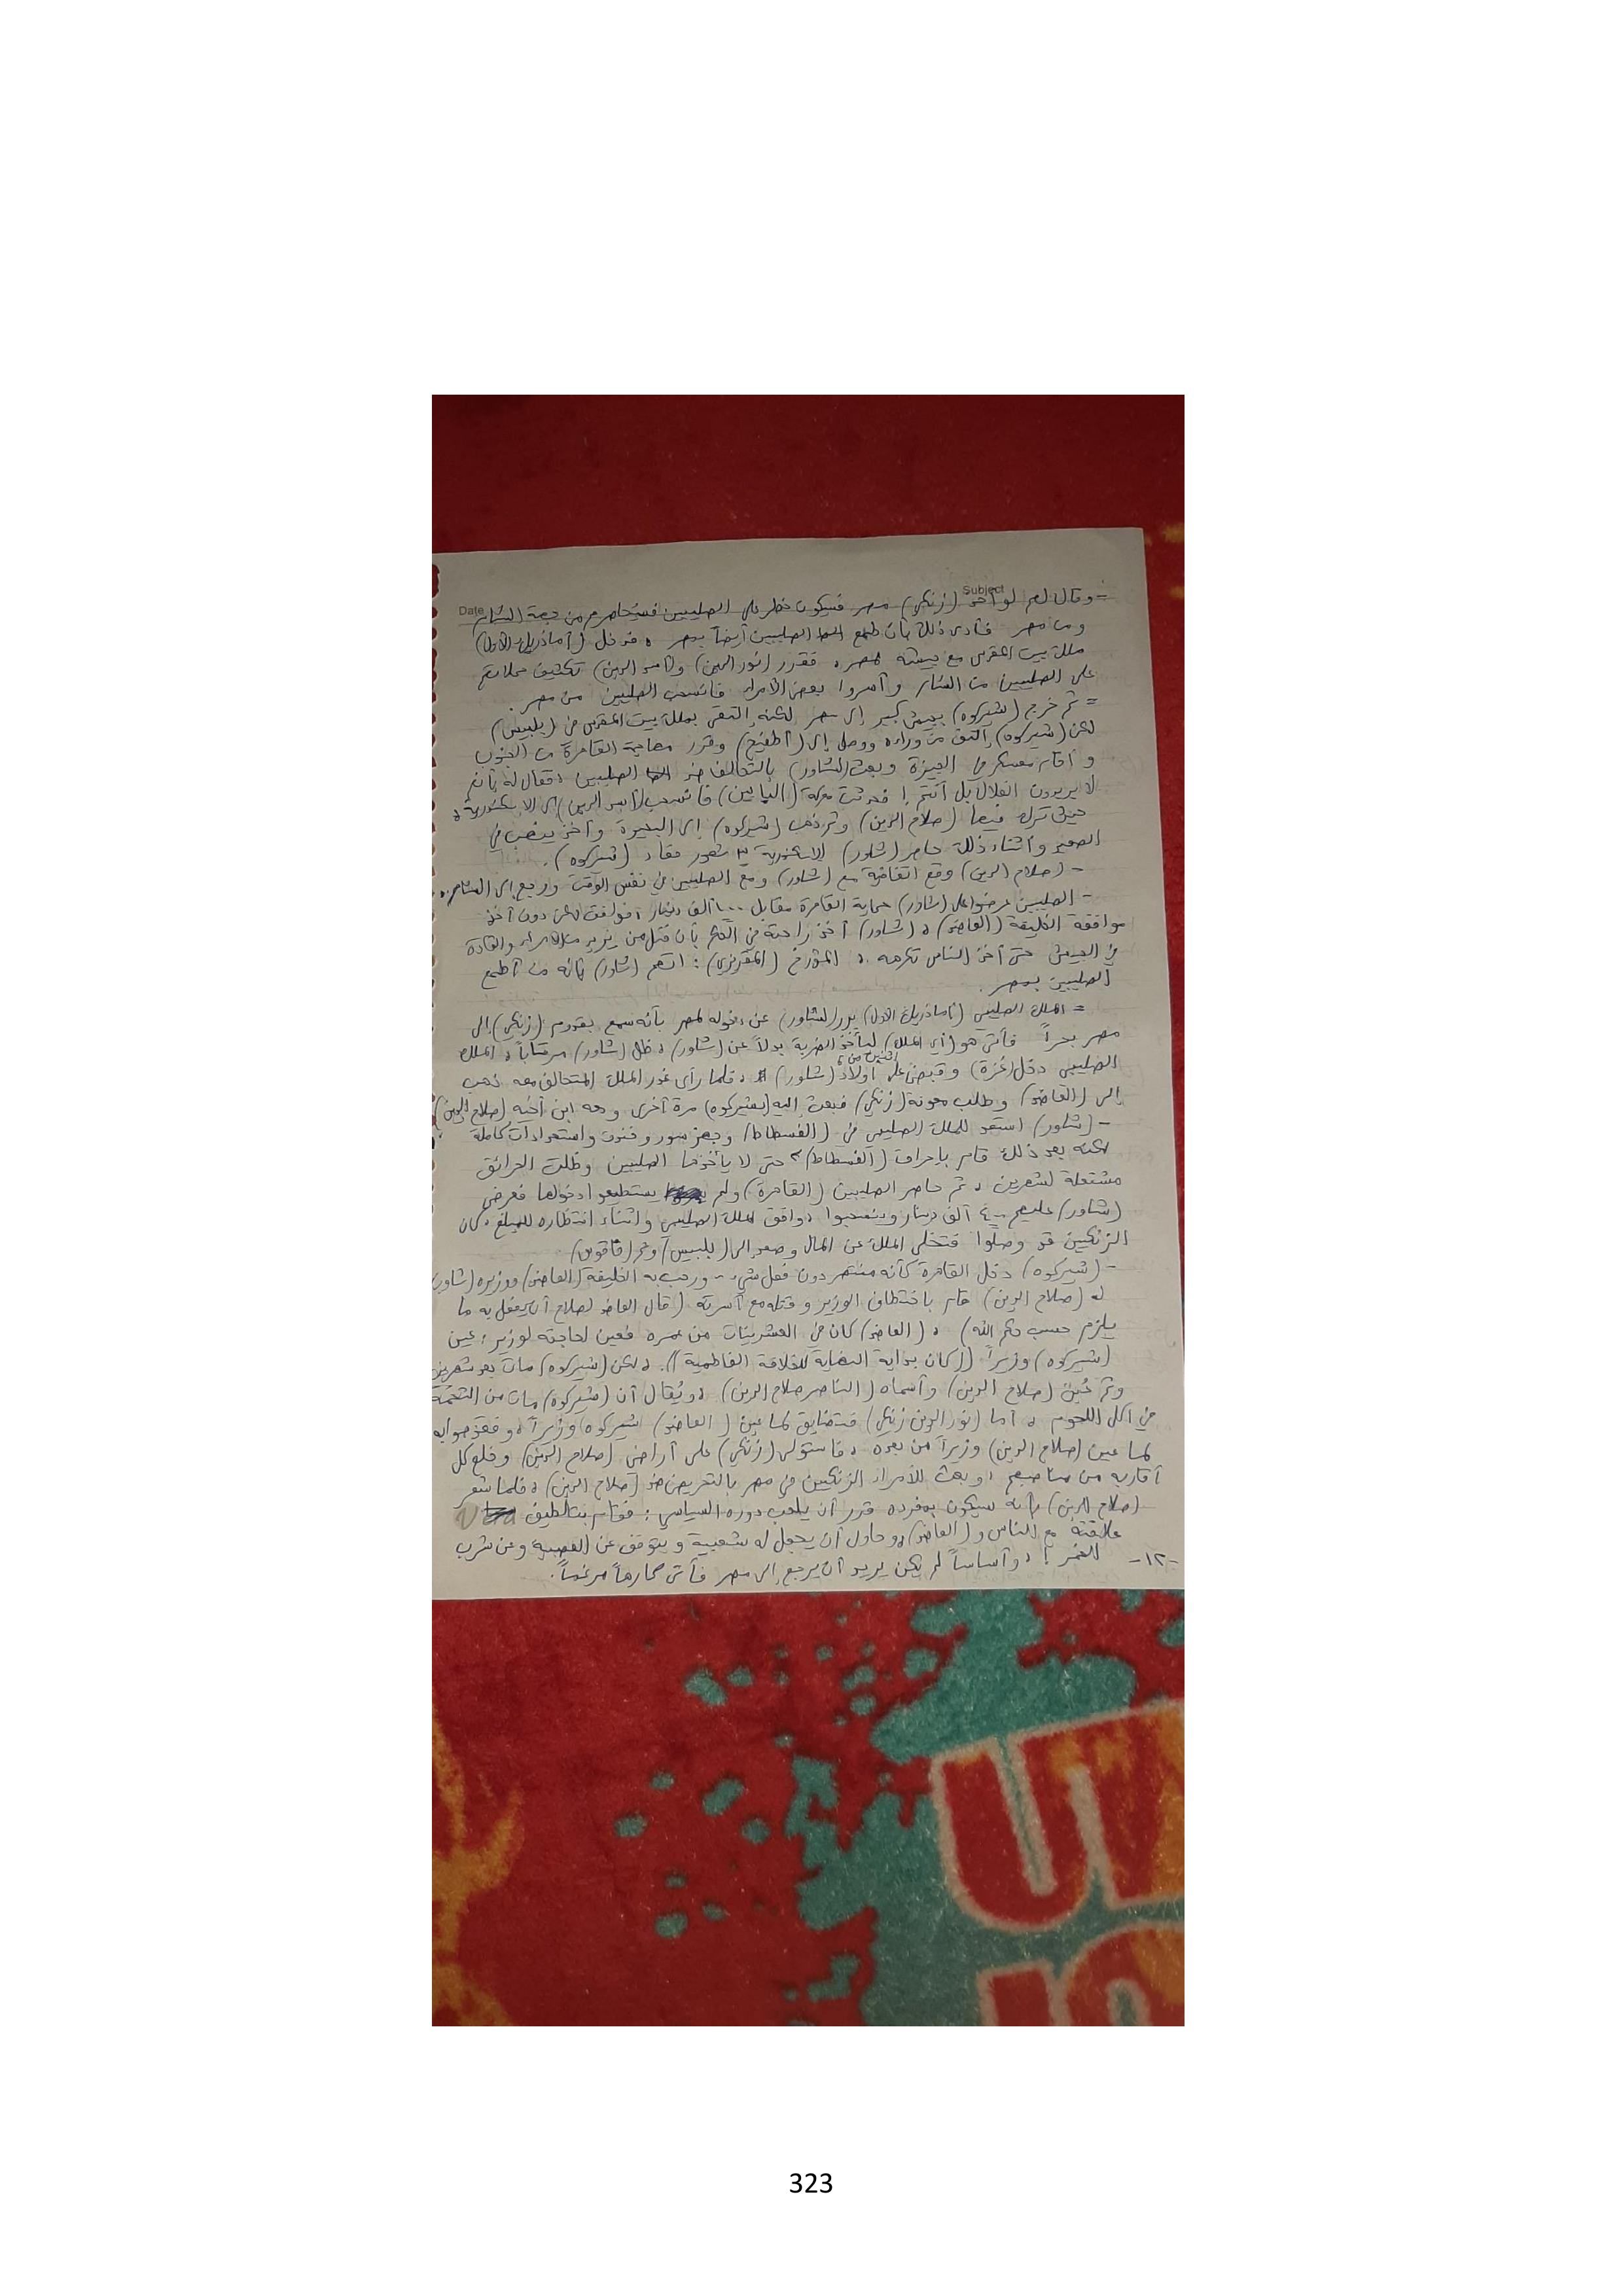 Subject
Date
= وقال لهم لو أخذ (زنكي) مصر فسيكون خطر على الصليبيين فسيحاصرهم من جهة الشام
ومن مصر فأدى ذلك بأن طمع الصليبيين أيضاً بمصر، فدخل (أماذريك الأول)
ملك بيت المقدس مع جيشه لمصر، فقرر (نور الدين) و(أسد الدين) تكثيف حملاتهم
على الصليبيين من الشام وأسروا بعض الأمراء فانسحب الصليبين من مصر.
= ثم خرج (شيركوه) بجيش كبير إلى مصر لكنه إلتقى بملك بيت المقدس في (بلبيس)
لكن (شيركوه) إلتف من وراءه ووصل إلى (أطفيح) وقرر مهاجمة القاهرة من الجنوب
وأقام معسكر في الجيزة وبعث (لشاور) بالتحالف ضد الصليبين، فقال له بأن
لا يريدون القلال بل أنتم! فحدثت معركة (البابين) فانسحب (أسد الدين) إلى الاسكندرية،
حيث ترك فيها (صلاح الدين) وثم ذهب (شيركوه) إلى البحيرة وأخذ ينهب في
الصعيد وأثناء ذلك حاصر (شاور) الاسكندرية ٣ شهور فعاد (شيركوه).
- (صلاح الدين) وقع اتفاقية مع (شاور) ومع الصليبين في نفس الوقت ورجع إلى الشام.
- الصليبين عرضوا على (شاور) حماية القاهرة مقابل ١٠٠ ألف دينار فوافق لكن دون أخذ
موافقة الخليفة (العاضد)، (شاور) أخذ راحته في الحكم بأن قتل من يريد من الأمراء والقادة
في الجيش حتى أخذ الناس تكرهه، المؤرخ (المقريزي): اتهم (شاور) بأنه من أطمع
الصليبين بمصر.
= الملك الصليبي (أماذريك الأول) برر (لشاور) عن دخوله لمصر بأنه سمع بقدوم (زنكي) إلى
مصر بحراً فأتى هو (أي الملك) ليأخذ الضريبة بدلاً عن (شاور)، ظل (شاور) مرتاباً، الملك
الصليبي دخل (غزة) وقبض على اثنين من أولاد (شاور)، فلما رأى غدر الملك المتحالف معه ذهب
إلى (العاضد) وطلب معونة (زنكي) فبعث إليه (بشيركوه) مرة أخرى ومعه ابن أخيه (صلاح الدين)
- (شاور) استعد للملك الصليبي في (الفسطاط) وجهز سور وخندق واستعدادات كاملة
لكنه بعد ذلك قام بإحراق (الفسطاط) حتى لا يأخذها الصليبين وظلت الحرائق
مشتعلة لشهرين، ثم حاصر الصليبين (القاهرة) ولم يستطيعوا دخولها فعرض
(شاور) عليهم ٤٠٠ ألف دينار وينسحبوا، وافق الملك الصليبي وأثناء انتظاره للمبلغ، كان
الزنكيين قد وصلوا فتخلى الملك عن المال وصعد إلى (بلبيس) وثم (فاقوس)
- (شيركوه) دخل القاهرة كأنه منتصر دون فعل شيء ورحب به الخليفة (العاضد) ووزيره (شاور)
(صلاح الدين) قام باختطاف الوزير وقتله مع أسرته (قال العاضد لصلاح أن يفعل به ما
يلزم حسب حكم الله)، (العاضد) كان في العشرينات من عمره فعين لحاجته لوزير؛ عين
(شيركوه) وزيراً ((كان بداية النهاية للخلافة الفاطمية))، لكن (شيركوه) مات بعد شهرين
وثم عُيّن (صلاح الدين) وأسماه (الناصر صلاح الدين)، ويُقال أن (شيركوه) مات من التخمة
من أكل اللحوم، أما (نور الدين زنكي) فتضايق لما عين (العاضد) شيركوه وزيراً، وفقد صوابه
لما عين (صلاح الدين) وزيراً من بعده، فاستولى (زنكي) على أراضي (صلاح الدين) وخلع كل
أقاربه من مناصبهم، وبعث للأمراء الزنكيين في مصر بالتحريض ضد (صلاح الدين)، فلما شعر
(صلاح الدين) بأنه سيكون بمفرده قرر أن يلعب دوره السياسي: فقام بتلطيف
علاقته مع الناس و(العاضد)، وحاول أن يجعل له شعبية ويتوقف عن وعن شرب
الخمر!، وأساساً لم يكن يريد أن يرجع إلى مصر فأتى كارهاً مرغماً.
-١٢-
323